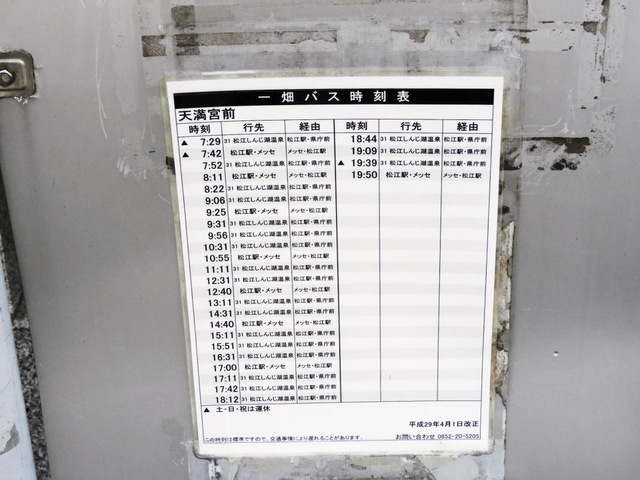 一畑バス時刻表
天満宮前
時刻 行先 経由 時刻 行先 経由
▲ 7:29 31 松江しんじ湖温泉 松江駅・県庁前 18:44 31 松江しんじ湖温泉 松江駅・県庁前
▲ 7:42 松江駅・メッセ メッセ・松江駅 19:09 31 松江しんじ湖温泉 松江駅・県庁前
7:52 31 松江しんじ湖温泉 松江駅・県庁前 ▲ 19:39 31 松江しんじ湖温泉 松江駅・県庁前
8:11 松江駅・メッセ メッセ・松江駅 19:50 松江駅・メッセ メッセ・松江駅
8:22 31 松江しんじ湖温泉 松江駅・県庁前
9:06 31 松江しんじ湖温泉 松江駅・県庁前
9:25 松江駅・メッセ メッセ・松江駅
9:31 31 松江しんじ湖温泉 松江駅・県庁前
9:56 31 松江しんじ湖温泉 松江駅・県庁前
10:31 31 松江しんじ湖温泉 松江駅・県庁前
10:55 松江駅・メッセ メッセ・松江駅
11:11 31 松江しんじ湖温泉 松江駅・県庁前
12:31 31 松江しんじ湖温泉 松江駅・県庁前
12:40 松江駅・メッセ メッセ・松江駅
13:11 31 松江しんじ湖温泉 松江駅・県庁前
14:31 31 松江しんじ湖温泉 松江駅・県庁前
14:40 松江駅・メッセ メッセ・松江駅
15:11 31 松江しんじ湖温泉 松江駅・県庁前
15:51 31 松江しんじ湖温泉 松江駅・県庁前
16:31 31 松江しんじ湖温泉 松江駅・県庁前
17:00 松江駅・メッセ メッセ・松江駅
17:11 31 松江しんじ湖温泉 松江駅・県庁前
17:42 31 松江しんじ湖温泉 松江駅・県庁前
18:12 31 松江しんじ湖温泉 松江駅・県庁前
▲ 土・日・祝は運休
平成29年4月1日改正
この時刻は標準ですので、交通事情により遅れることがあります。 お問い合わせ 0852-20-5205